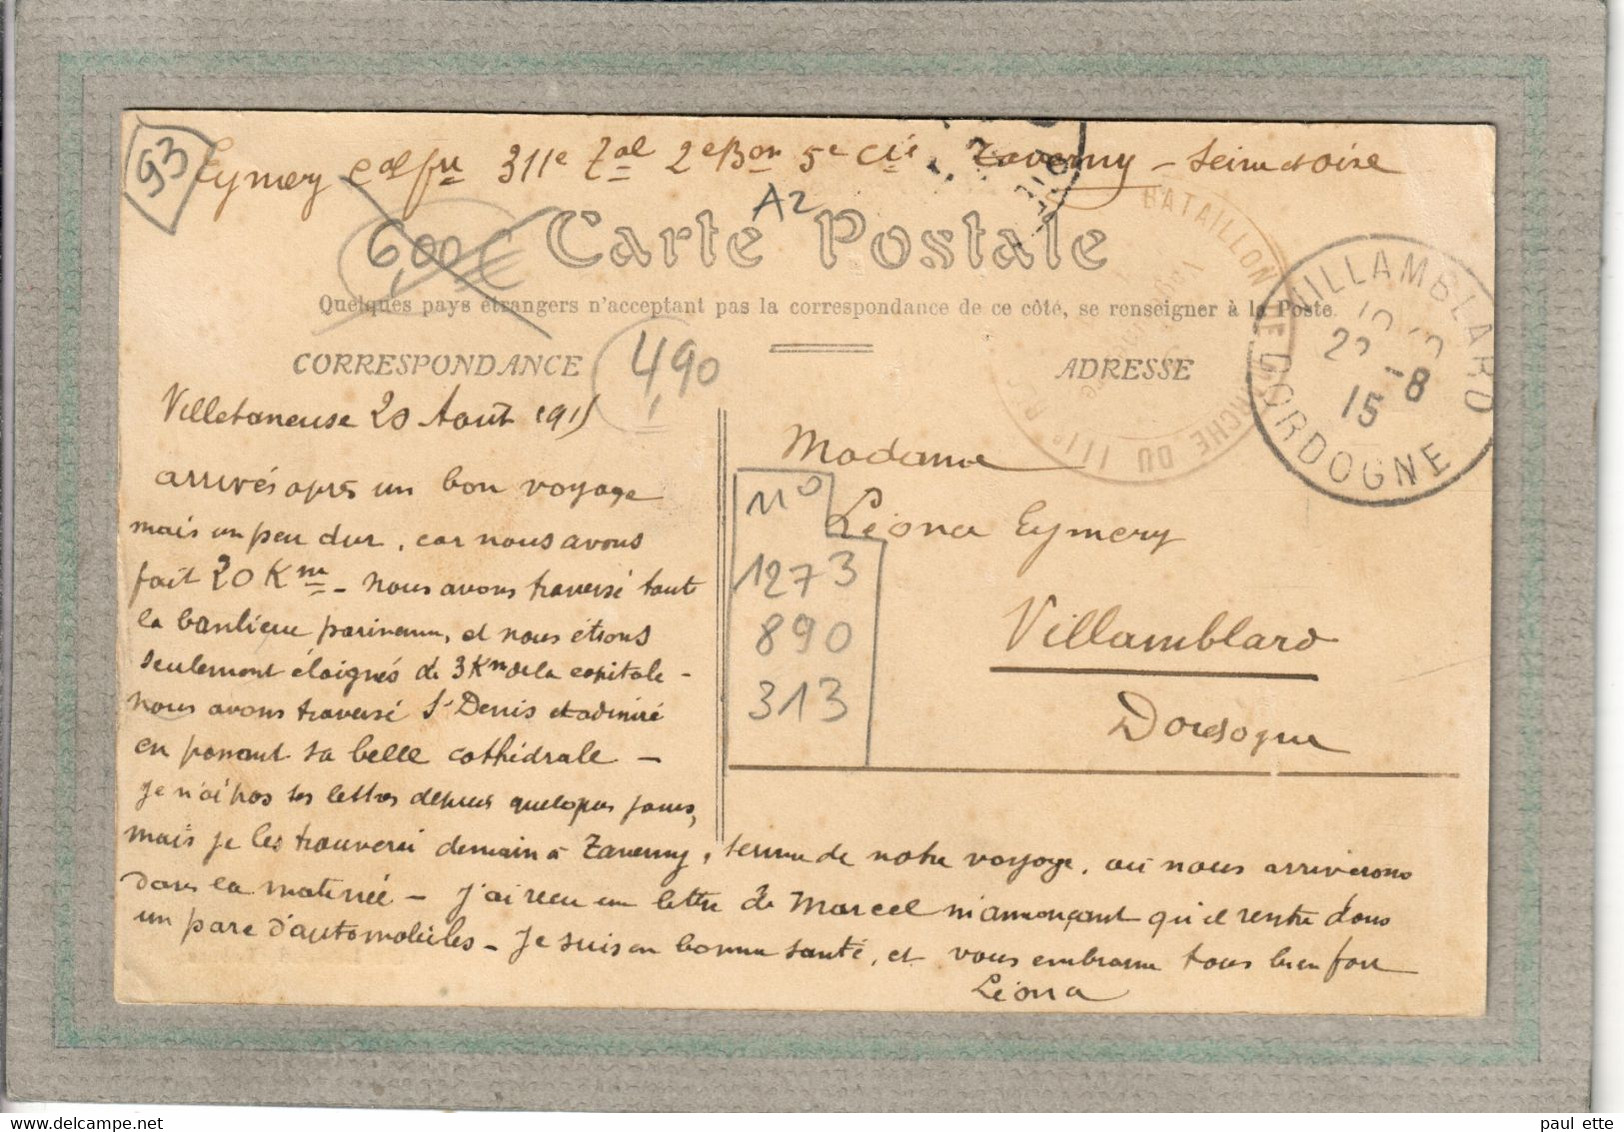 93
Eymery Cal fu 311e Tal 2e Bon 5e Cie, Taverny - Seine et Oise
A2
6,00€
Carte Postale
BATAILLON DE MARCHE DU 111e
Quelques pays étrangers n'acceptant pas la correspondance de ce côté, se renseigner à la Poste
VILLAMBLARD
22 -8
15
DORDOGNE
CORRESPONDANCE
4,90
ADRESSE
Villetaneuse 20 Août 1915
arrivés après un bon voyage
mais un peu dur, car nous avons
fait 20 Km - nous avons traversé toute
la banlieue parisienne, et nous étions
seulement éloignés de 3 Km de la capitale -
nous avons traversé St Denis et admiré
en passant sa belle cathédrale -
je n'ai pas tes lettres depuis quelques jours,
mais je les trouverai demain à Taverny, terme de notre voyage, où nous arriverons
dans la matinée - J'ai reçu une lettre de Marcel m'annonçant qu'il rentre dans
un parc d'automobiles - Je suis en bonne santé, et vous embrasse tous bien fort
Léona
Madame
Léona Eymery
Villamblard
Dordogne
No
1273
890
313
paul ette